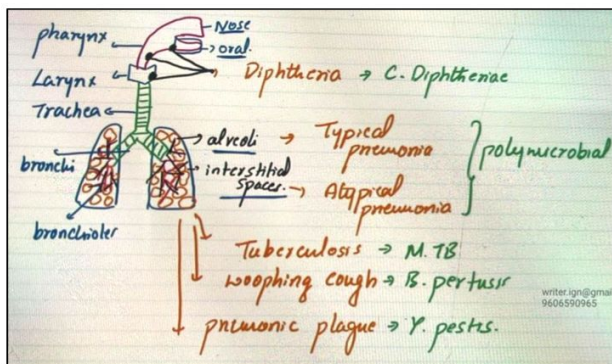 Nose
pharynx
→ oral.
Larynx
Diphtheria → C. Diphtheriae
Trachea
alveoli → Typical pneumonia
polymicrobial
bronchi
interstitial spaces. → Atypical pneumonia
bronchioles
Tuberculosis → M. TB
woophing cough → B. pertusis
pneumonic plague → Y. pestis.
writer.ign@gmai
9606590965